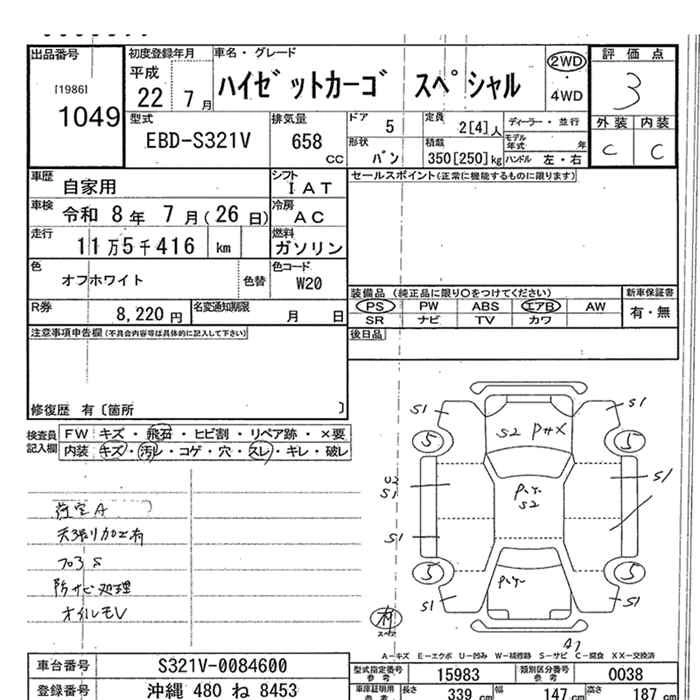 出品番号 初度登録年月 車名・グレード 評価点
[1986] 1049 平成 22 7月 ハイゼットカーゴ スペシャル 2WD 4WD 3
型式 EBD-S321V 排気量 658 CC ドア 5 定員 2[4]人 ディーラー・並行 外装 内装
形状 バン 積載 350[250]kg モデル年式 年 ハンドル 左・右 C C
車歴 自家用 シフト IAT セールスポイント(正常に機能するものに限ります)
車検 令和 8年 7月(26日) 冷房 AC
走行 11万5千416 km 燃料 ガソリン
色 オフホワイト 色替 色コード W20
装備品 (純正品に限り○をつけてください) 新車保証書
R券 8,220円 名変通知期限 月 日 PS PW ABS エアB AW 有・無
SR ナビ TV カワ
注意事項申告欄(不具合内容等は具体的に記入して下さい) 後日品
修復歴 有〔箇所 〕
検査員記入欄 FW キズ・飛石・ヒビ割・リペア跡・×要
内装 キズ・汚レ・コゲ・穴・スレ・キレ・破レ
S1 S1
S2
5 5
U2 S1 S1
S2
荷室A
天張り加工有 S1
フロアS
防サビ処理 5 5
オイルモレ
S1 S1
A2
A−キズ E−エクボ U−凹み W−補修跡 S−サビ C−腐食 XX−交換済
車台番号 S321V-0084600 型式指定番号 参考 15983 類別区分番号 参考 0038
登録番号 沖縄 480 ね 8453 車庫証明用 参考 長さ 339 cm 幅 147 cm 高さ 187 cm